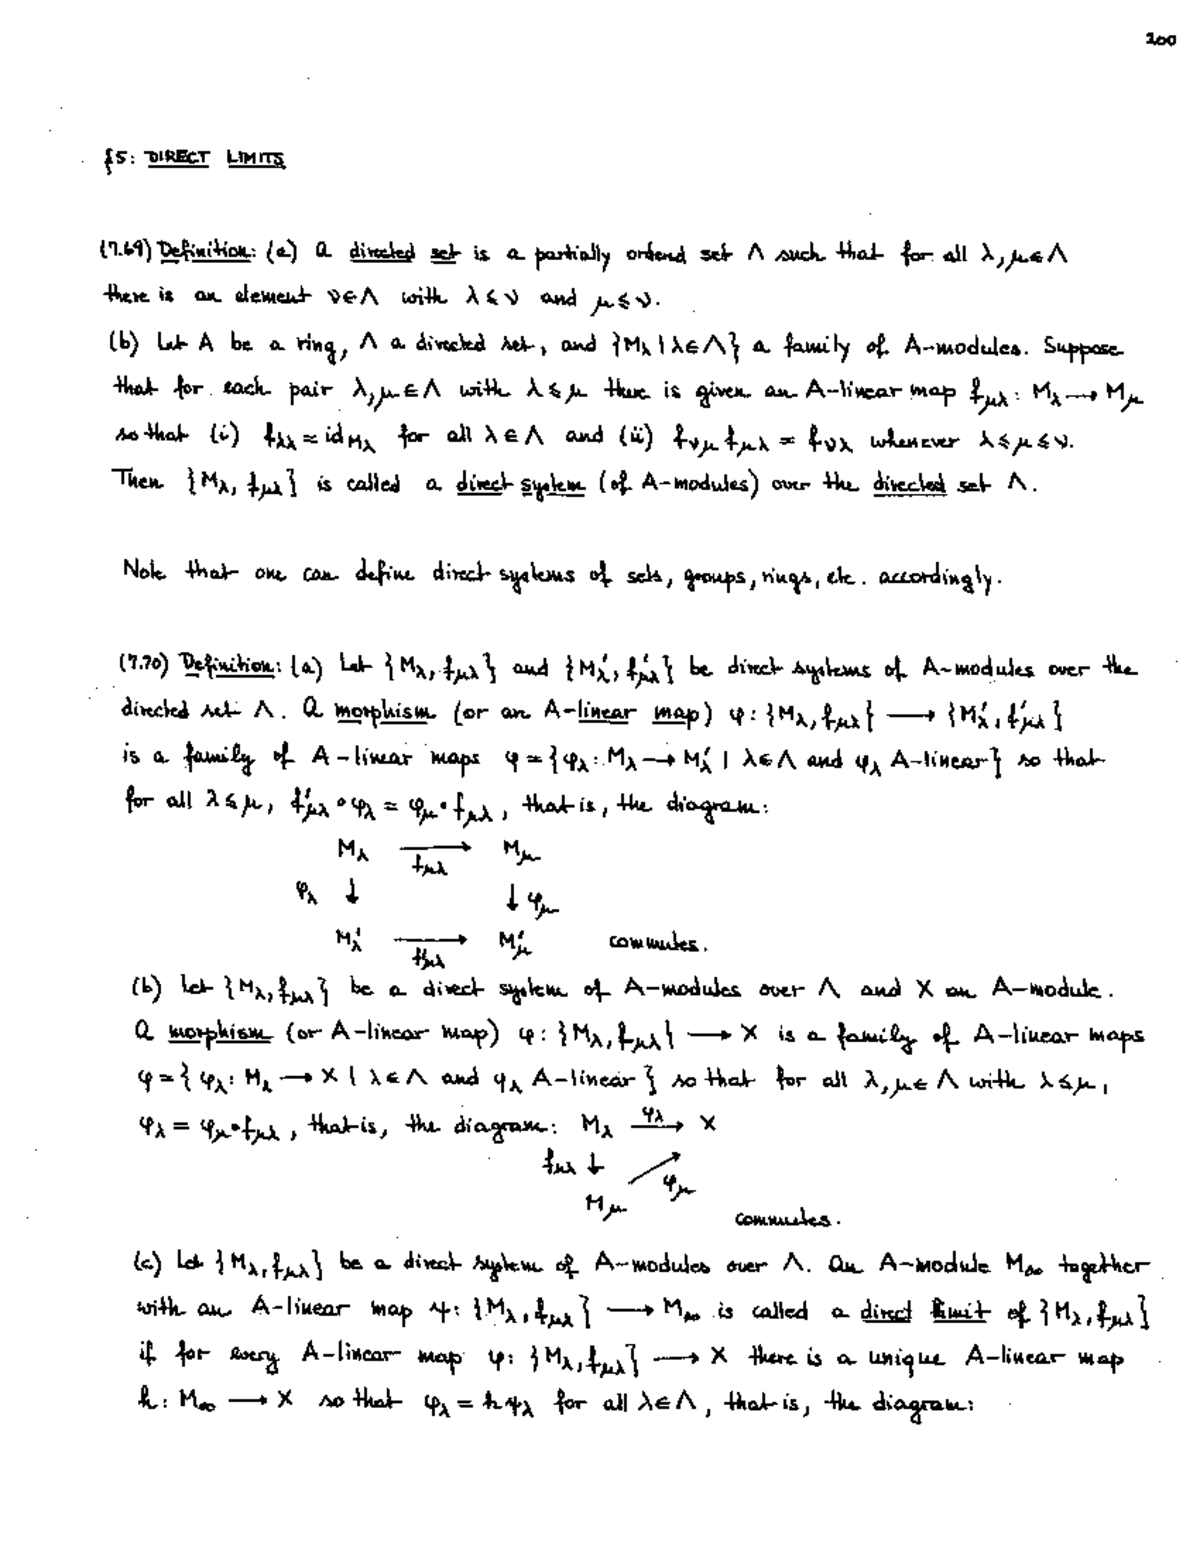 200
§5: DIRECT LIMITS
(7.69) Definition: (a) A directed set is a partially ordered set Λ such that for all λ, μ ∈ Λ
there is an element ν ∈ Λ with λ ≤ ν and μ ≤ ν.
(b) Let A be a ring, Λ a directed set, and {M_λ | λ ∈ Λ} a family of A-modules. Suppose
that for each pair λ, μ ∈ Λ with λ ≤ μ there is given an A-linear map f_μλ : M_λ ⟶ M_μ
so that (i) f_λλ = id_M_λ for all λ ∈ Λ and (ii) f_νμ f_μλ = f_νλ whenever λ ≤ μ ≤ ν.
Then {M_λ, f_μλ} is called a direct system (of A-modules) over the directed set Λ.
Note that one can define direct systems of sets, groups, rings, etc. accordingly.
(7.70) Definition: (a) Let {M_λ, f_μλ} and {M'_λ, f'_μλ} be direct systems of A-modules over the
directed set Λ. A morphism (or an A-linear map) φ: {M_λ, f_μλ} ⟶ {M'_λ, f'_μλ}
is a family of A-linear maps φ = {φ_λ : M_λ ⟶ M'_λ | λ ∈ Λ and φ_λ A-linear} so that
for all λ ≤ μ, f'_μλ ∘ φ_λ = φ_μ ∘ f_μλ, that is, the diagram:
M_λ ⟶ M_μ
f_μλ
φ_λ ↓ ↓ φ_μ
M'_λ ⟶ M'_μ commutes.
f'_μλ
(b) Let {M_λ, f_μλ} be a direct system of A-modules over Λ and X an A-module.
A morphism (or A-linear map) φ: {M_λ, f_μλ} ⟶ X is a family of A-linear maps
φ = {φ_λ : M_λ ⟶ X | λ ∈ Λ and φ_λ A-linear} so that for all λ, μ ∈ Λ with λ ≤ μ,
φ_λ = φ_μ ∘ f_μλ, that is, the diagram: M_λ ⟶ X
φ_λ
f_μλ ↓ ↗ φ_μ
M_μ
commutes.
(c) Let {M_λ, f_μλ} be a direct system of A-modules over Λ. An A-module M_∞ together
with an A-linear map ψ: {M_λ, f_μλ} ⟶ M_∞ is called a direct limit of {M_λ, f_μλ}
if for every A-linear map φ: {M_λ, f_μλ} ⟶ X there is a unique A-linear map
h: M_∞ ⟶ X so that φ_λ = h ψ_λ for all λ ∈ Λ, that is, the diagram: